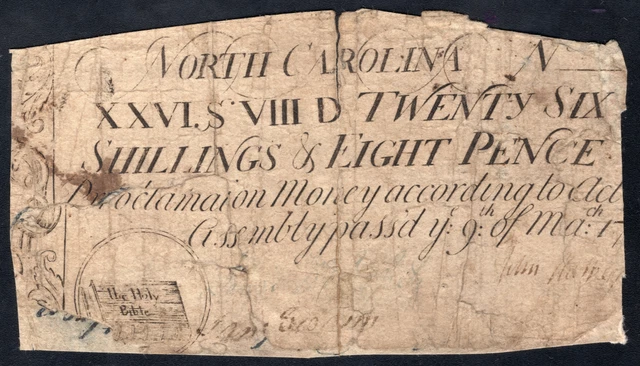 NORTH CAROLINA N
XXVI.S VIII D TWENTY SIX
SHILLINGS & EIGHT PENCE
Proclamaion Money according to Act
Assembly pass'd yᵉ: 9:ᵗʰ of Ma:ᶜʰ 17
The Holy
Bible